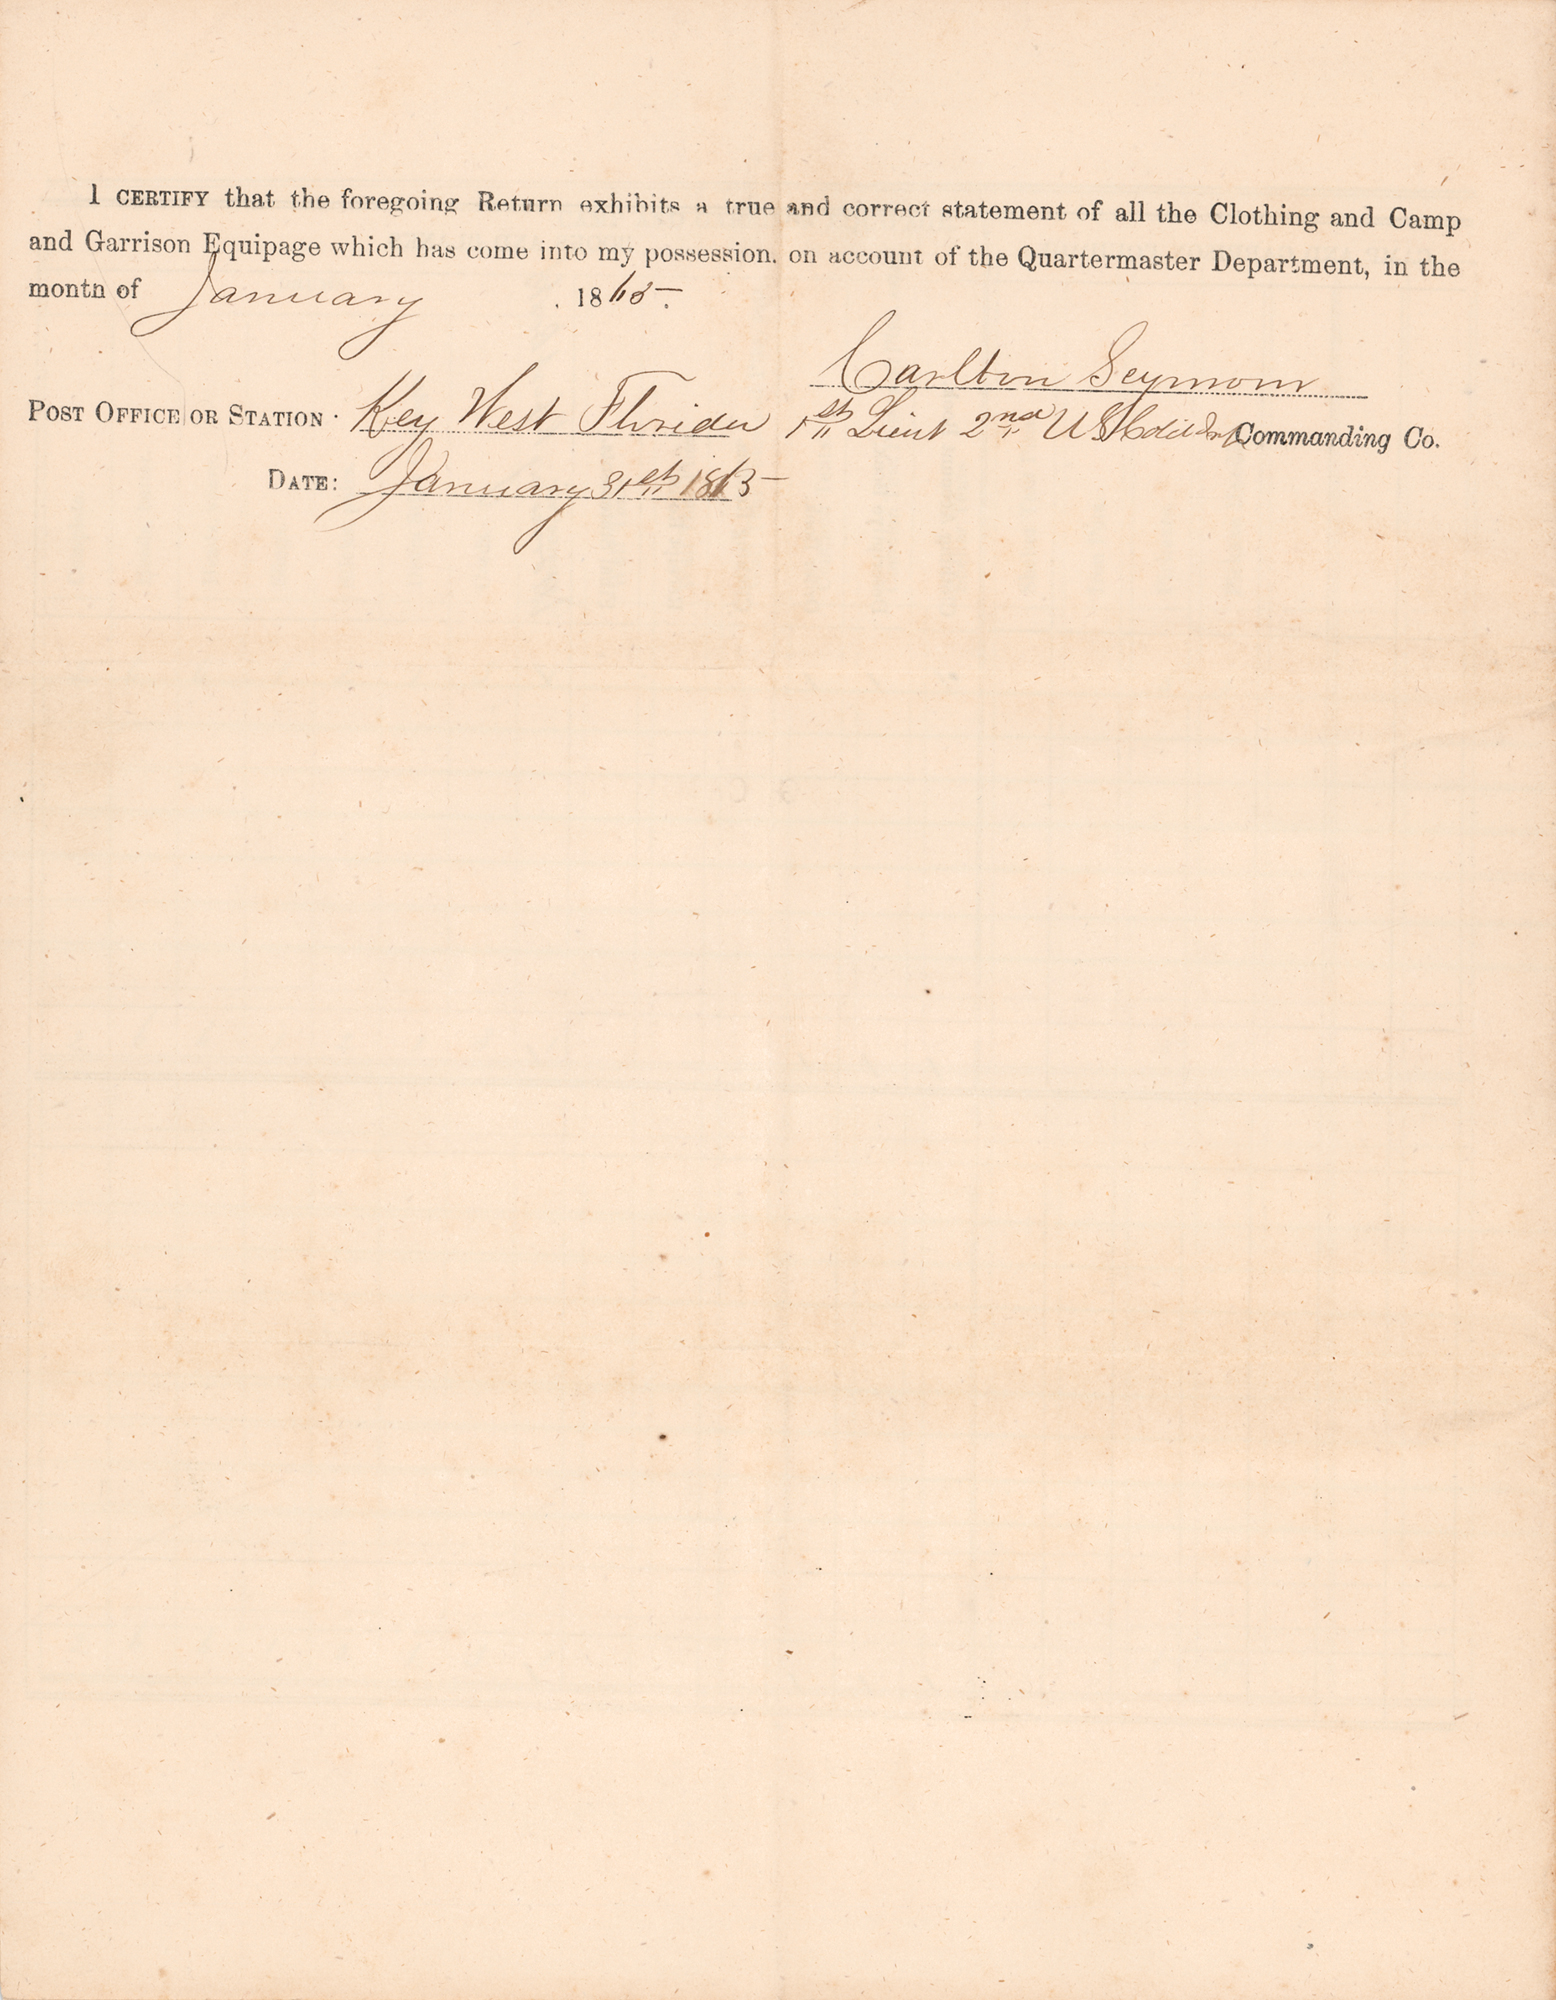 I CERTIFY that the foregoing Return exhibits a true and correct statement of all the Clothing and Camp
and Garrison Equipage which has come into my possession, on account of the Quartermaster Department, in the
month of January 1865.
Carlton Seymour
POST OFFICE OR STATION: Key West Florida 1st Lieut 2nd US Cold Inf Commanding Co.
DATE: January 31st 1865